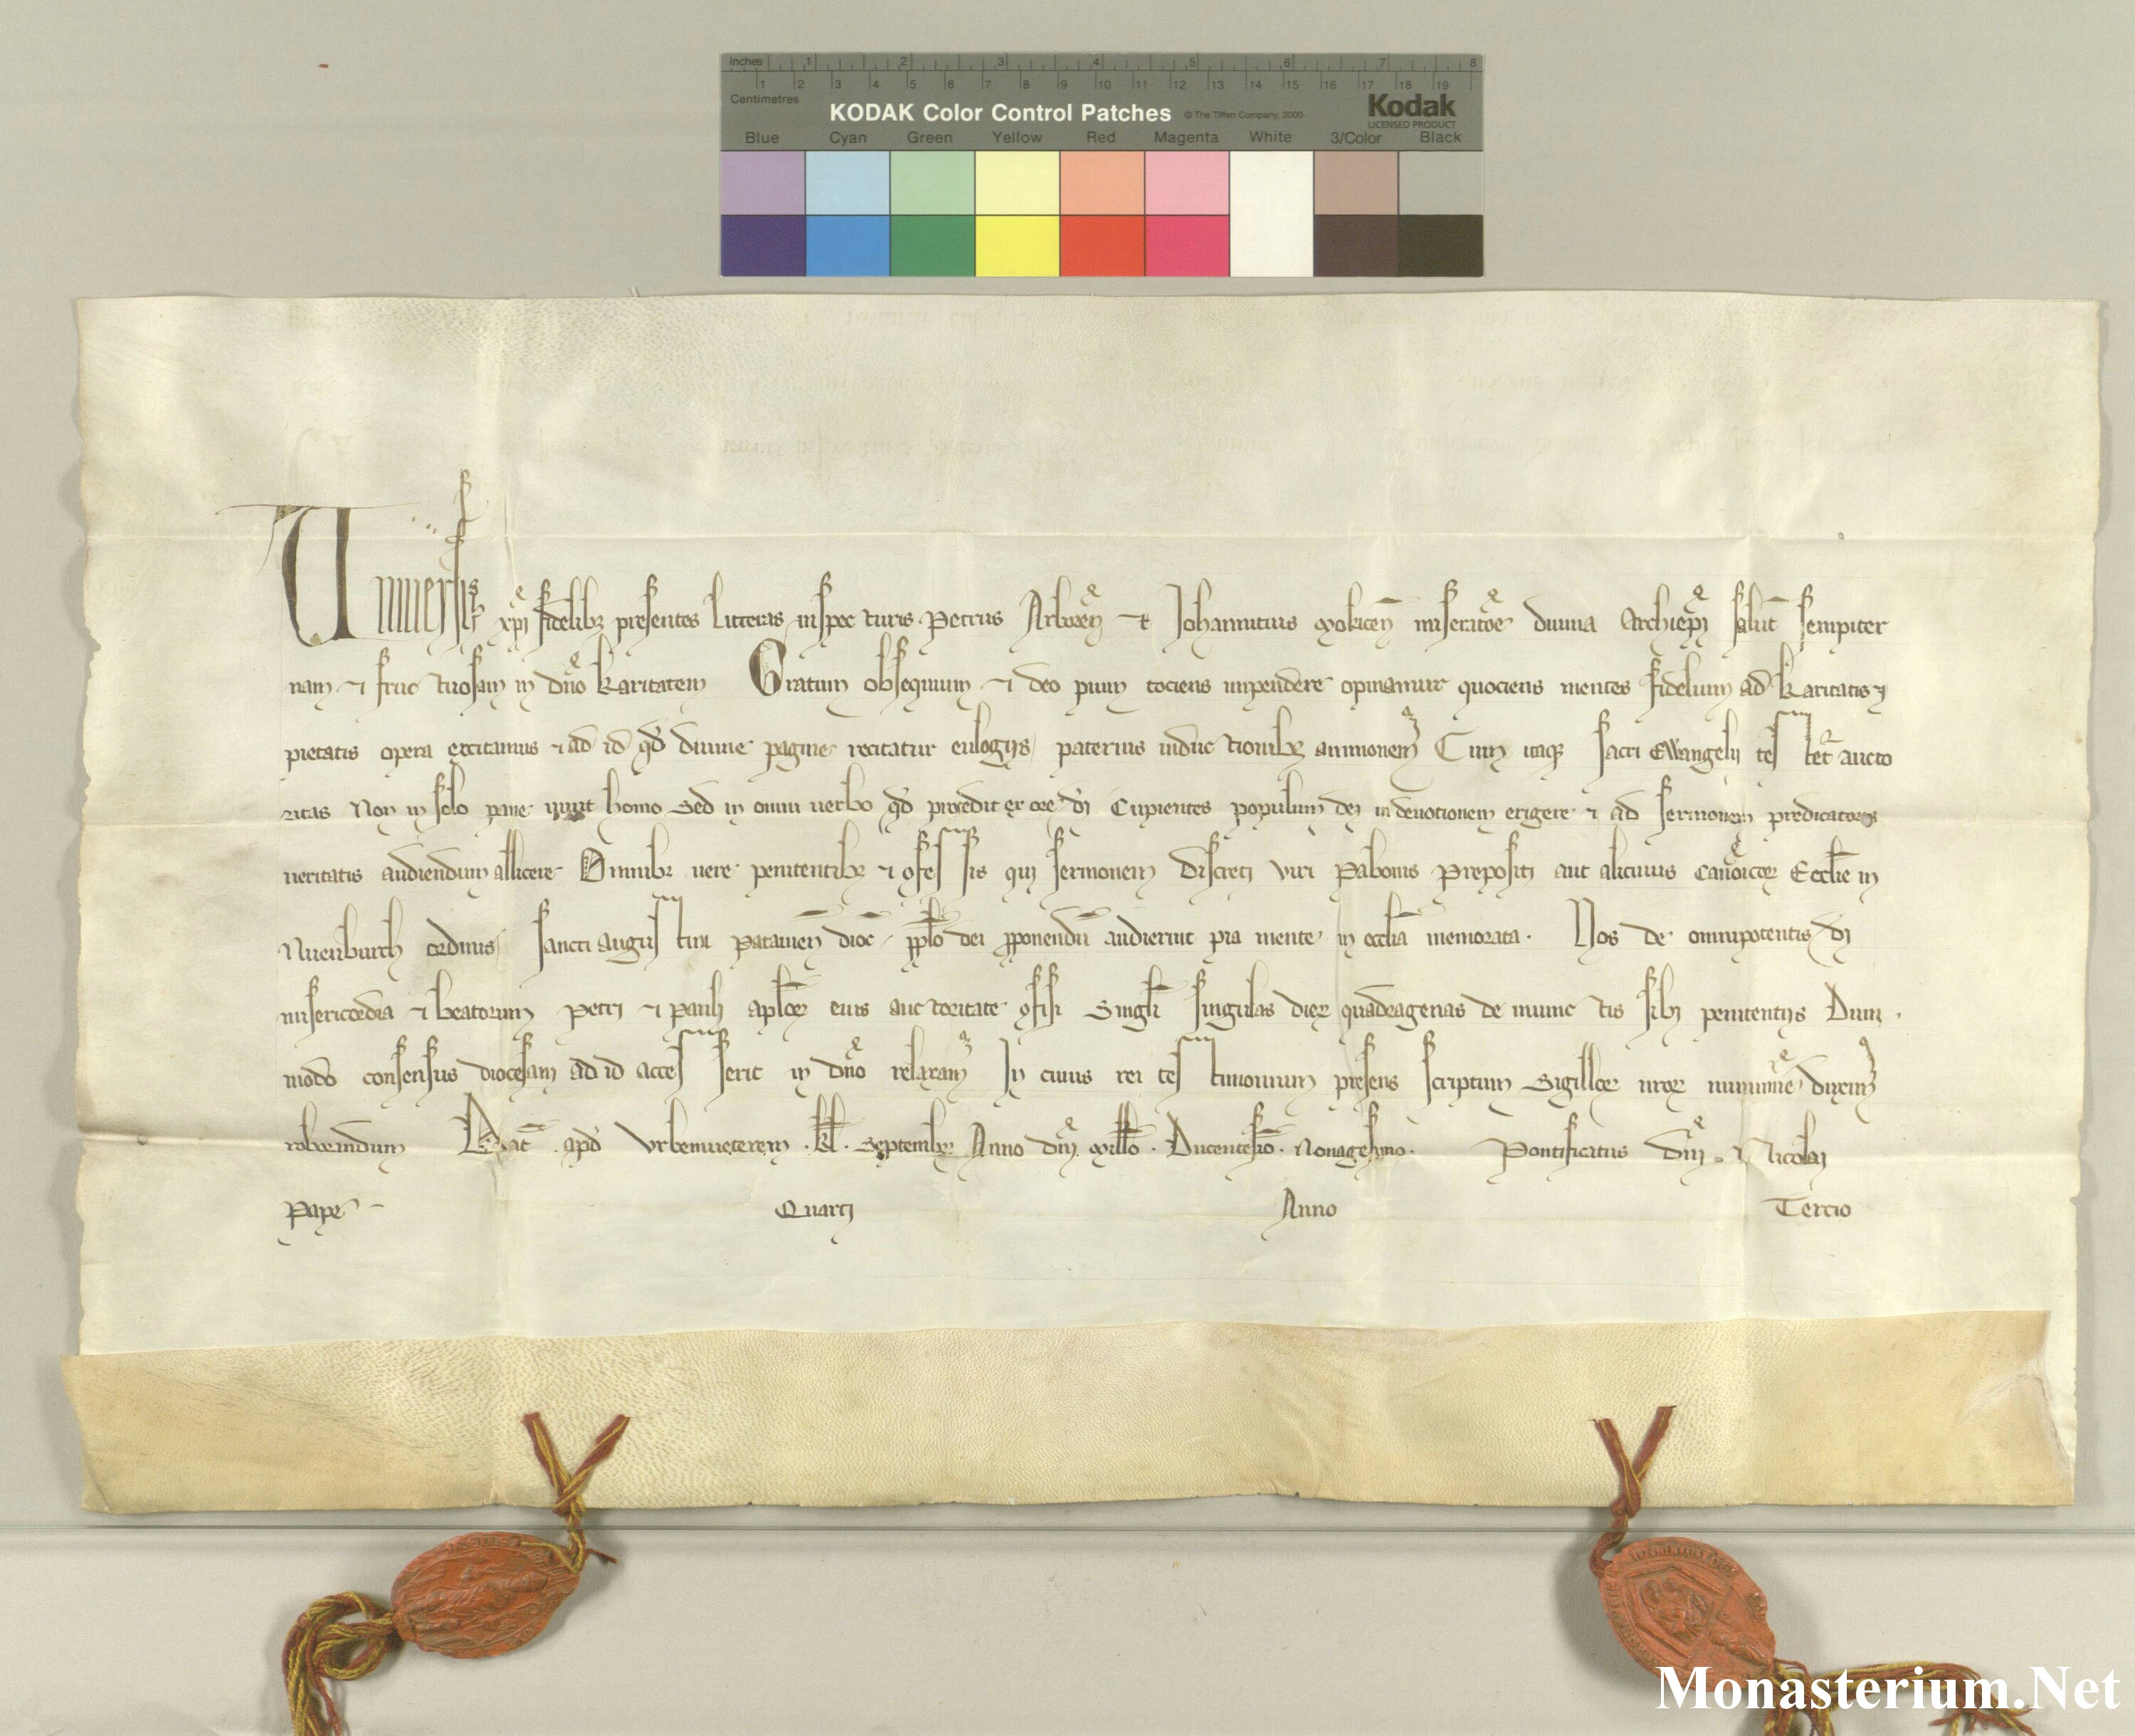 Inches 1 2 3 4 5 6 7 8
1 2 3 4 5 6 7 8 9 10 11 12 13 14 15 16 17 18 19
Centimetres
KODAK Color Control Patches © The Tiffen Company, 2000 Kodak
LICENSED PRODUCT
Blue Cyan Green Yellow Red Magenta White 3/Color Black
Uniuersis xpi fidelib; presentes litteras inspecturis Petrus Arboren̄ et Johannitius Mokicen̄ miseratōe diuina Archiepi salut̄ sempiter
nam ⁊ fructuosam in dno karitatem Gratum obsequium ⁊ deo pium tociens impendere opinamur quociens mentes fidelium ad karitatis ⁊
pietatis opera excitamus ⁊ ad id qd diuine pagine recitatur eulogijs paternis inductionib; ammonem Cum itaq; sacri Ewangelij testetr aucto
ritas Non in solo pane uiuit homo Sed in omni uerbo qd procedit ex ore di Cupientes populum dei in deuotionem erigere ⁊ ad sermonem predicatoris
ueritatis audiendum allicere Omnib; uere penitentib; ⁊ ꝯfessis qui sermonem discreti viri Pabonis Prepositi aut alicuius canoicor Ecclie in
Nuenburch ordinis sancti augustini Patauien̄ dioc̄ pplo dei ꝓponendū audierint pia mente in ecclīa memorata. Nos de omnipotentis di
misericordia ⁊ beatorum Petri ⁊ Pauli aplor eius auctoritate ꝯfisi Singli singulas dier quadragenas de iniunctis sibi penitentijs Dum
modo consensus diocesani ad id accesserit in dno relaxam In cuius rei testimonium presens scriptum Sigillor nror munimine duxim
roborandum Dat̄ apd Vrbemueterem . kl . Septembr Anno dni Millo . Ducentesio . Nonagesimo . Pontificatus dni . N Nicolai
Pape Quarti Anno Tercio
Monasterium.Net